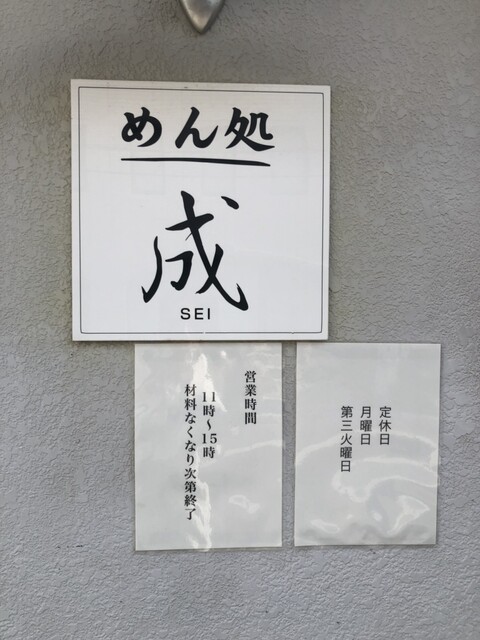 めん処
成
SEI
営業時間
11時～15時
材料なくなり次第終了
定休日
月曜日
第三火曜日